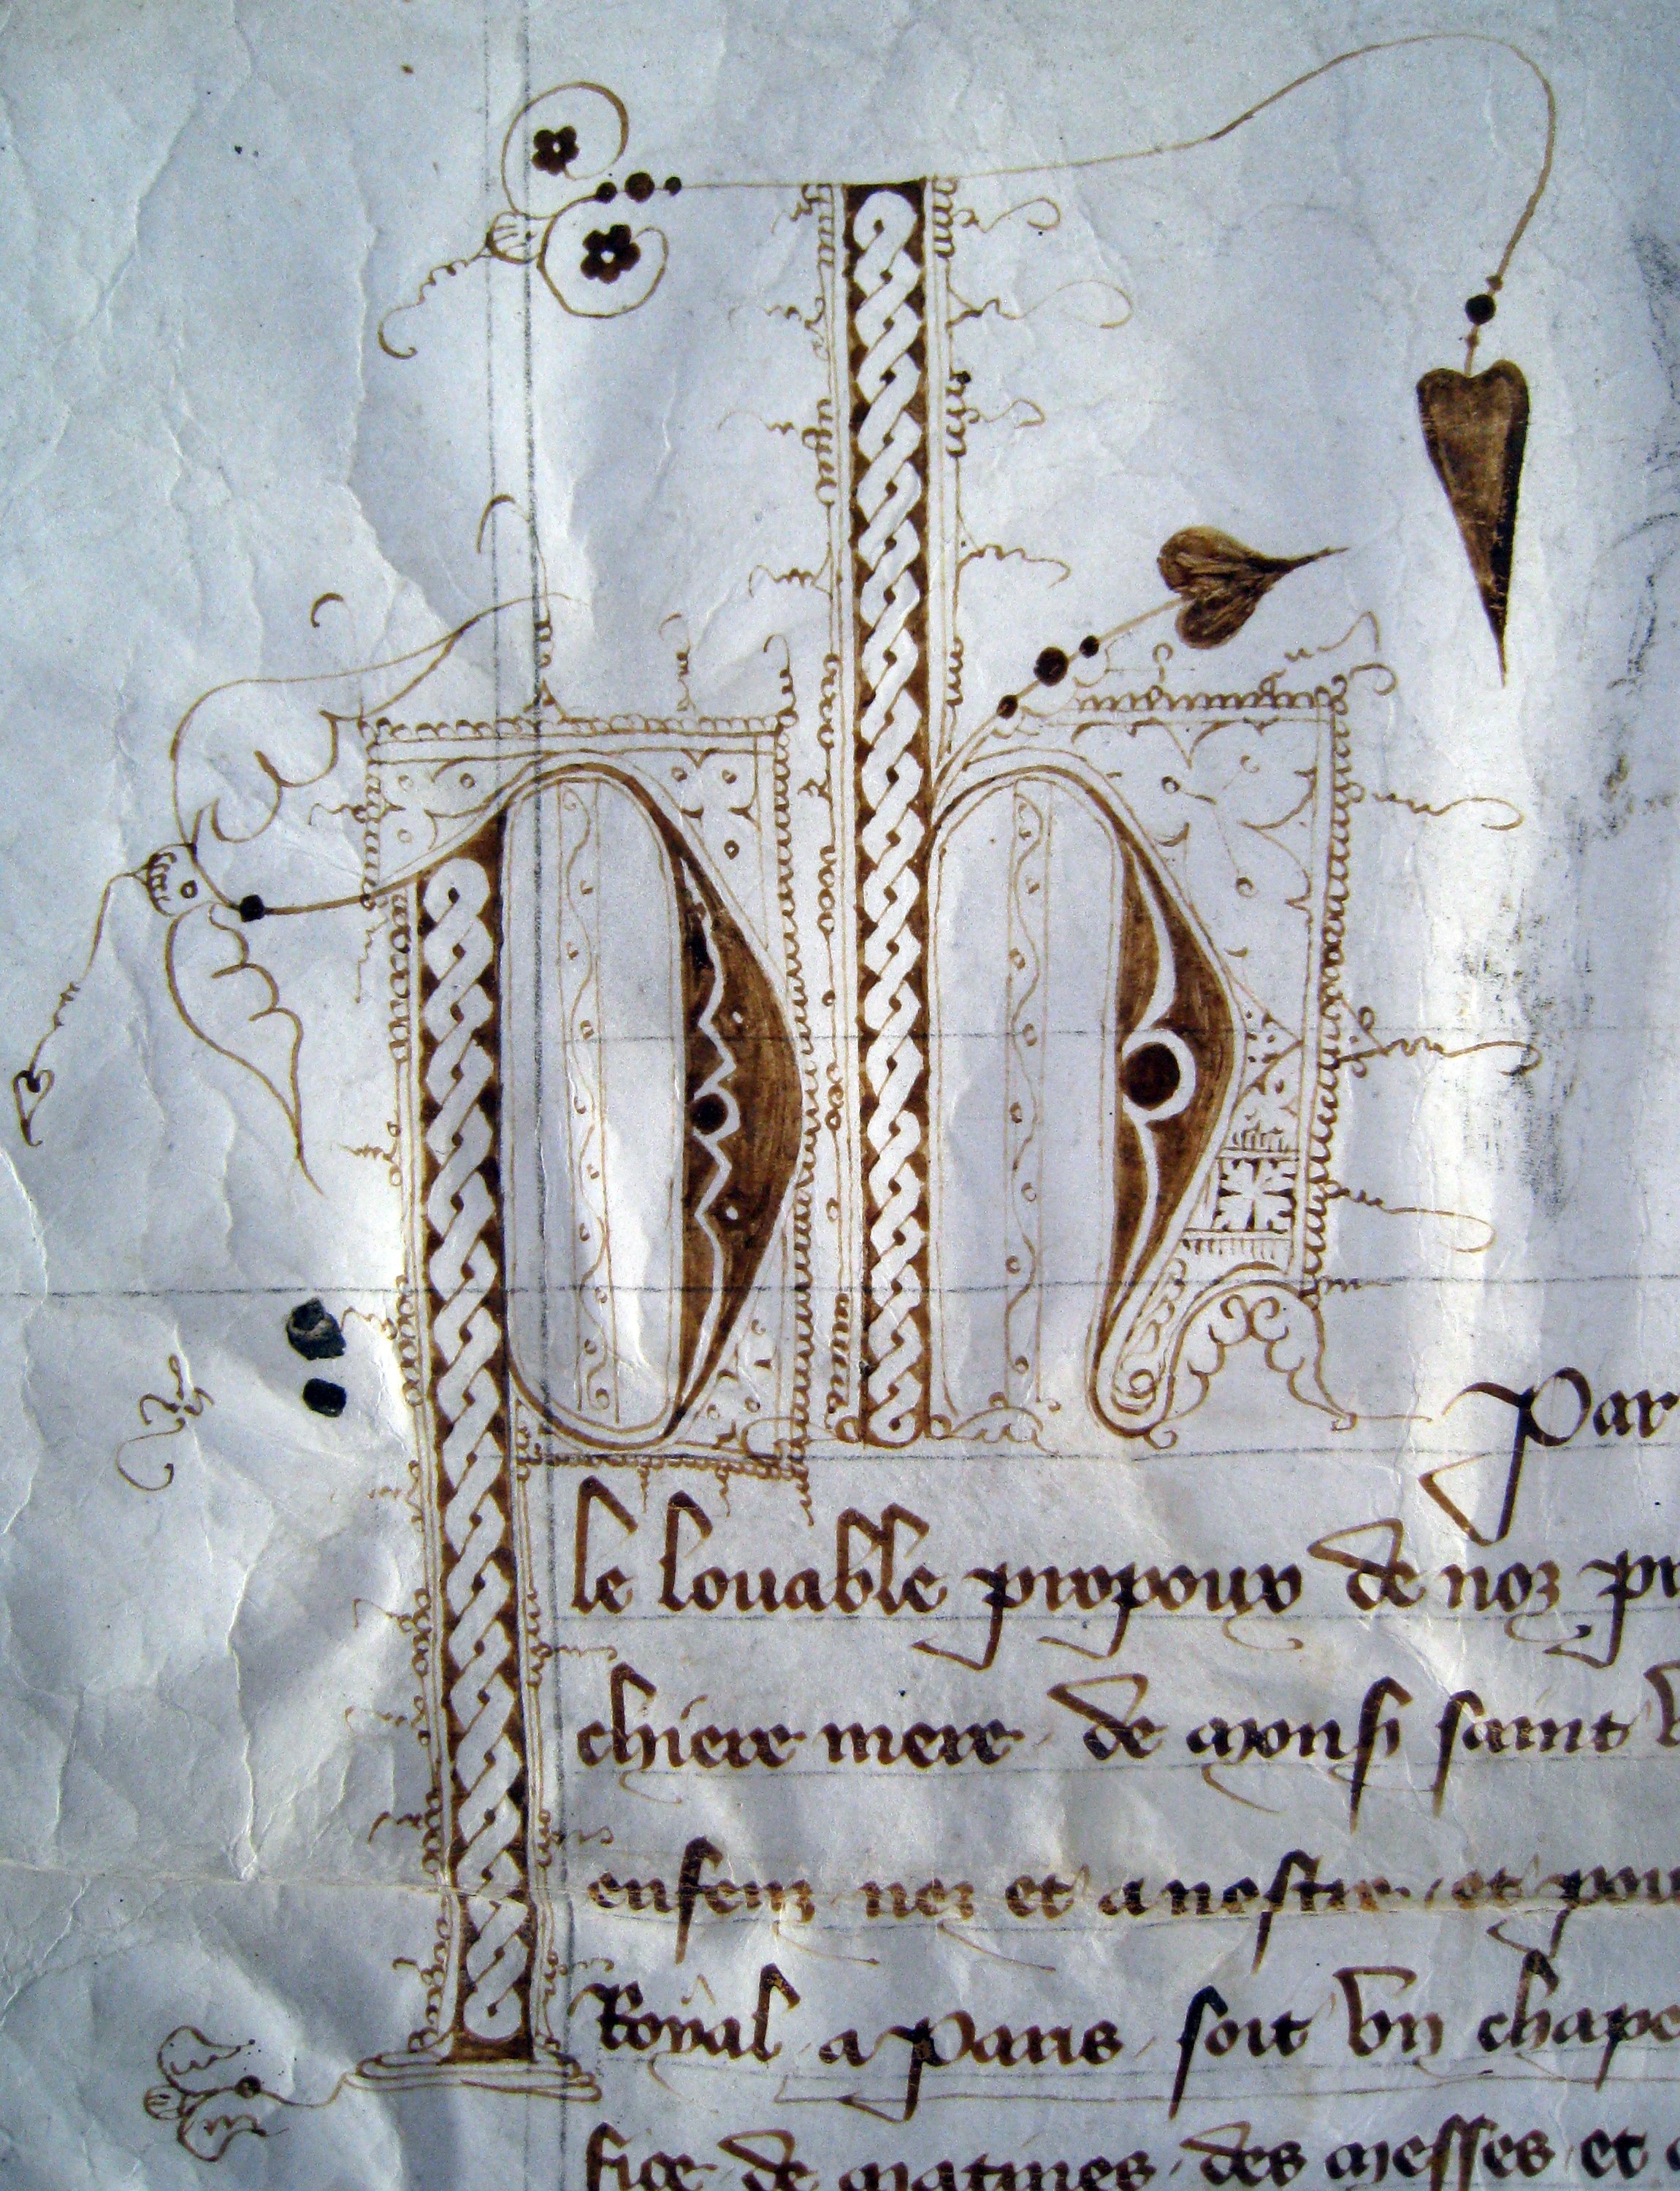 Par
le louable propoux de noz pr
chiere mere de monsʳ saint
enfenz nez et a nestre et pour
Royal a Paris soit vn chape
fice de matines des messes et